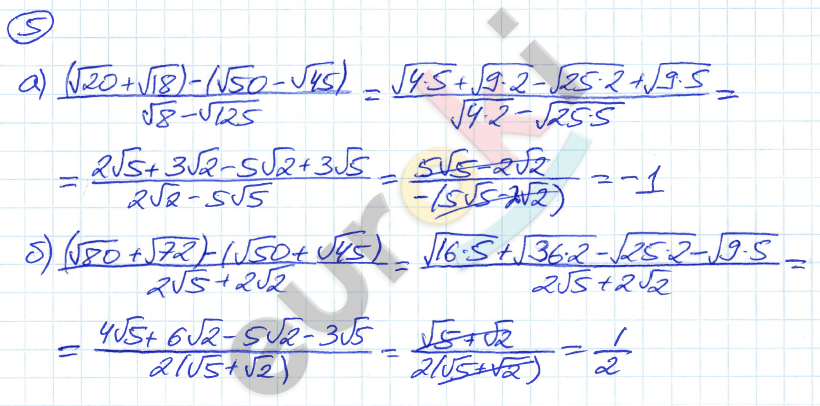 5
а) ((√20 + √18) - (√50 - √45)) / (√8 - √125) = (√4·5 + √9·2 - √25·2 + √9·5) / (√4·2 - √25·5) =
= (2√5 + 3√2 - 5√2 + 3√5) / (2√2 - 5√5) = (5√5 - 2√2) / (-(5√5 - 2√2)) = -1
б) ((√80 + √72) - (√50 + √45)) / (2√5 + 2√2) = (√16·5 + √36·2 - √25·2 - √9·5) / (2√5 + 2√2) =
= (4√5 + 6√2 - 5√2 - 3√5) / (2(√5 + √2)) = (√5 + √2) / (2(√5 + √2)) = 1/2
euroki